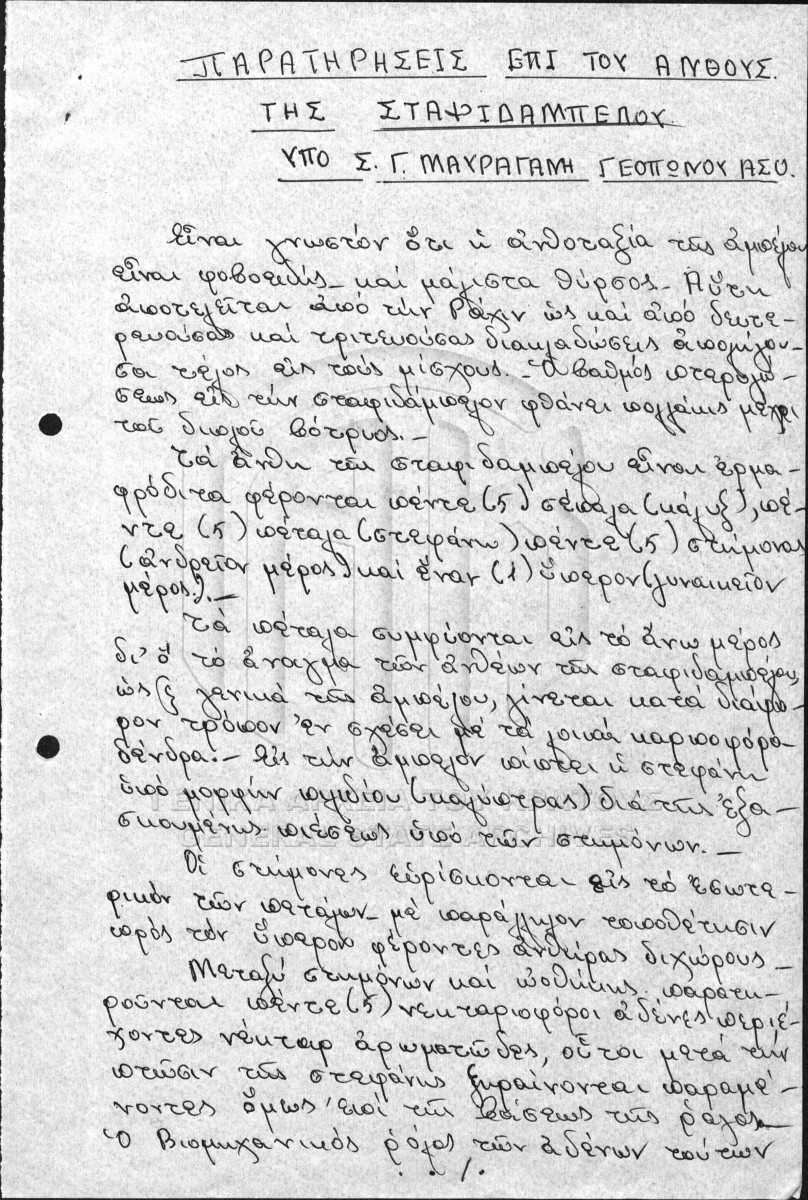 ΠΑΡΑΤΗΡΗΣΕΙΣ ΕΠΙ ΤΟΥ ΑΝΘΟΥΣ.
ΤΗΣ ΣΤΑΦΙΔΑΜΠΕΛΟΥ.
ΥΠΟ Σ. Γ. ΜΑΥΡΑΓΑΝΗ ΓΕΟΠΩΝΟΥ ΑΣΟ.
Εἶναι γνωστόν ὅτι ἡ ἀνθοταξία τῆς ἀμπέλου
εἶναι φοβοειδής - καί μάλιστα θύρσος - Αὕτη
ἀποτελεῖται ἀπό τήν Ράχιν ὡς καί ἀπό δευτε-
ρευούσας καί τριτευούσας διακλαδώσεις ἀπολήγου-
σαι τέλος εἰς τούς μίσχους. - Ὁ βαθμός πτερολύ-
σεως εἰς τήν σταφιδάμπελον φθάνει πολλάκις μέχρι
τοῦ διπλοῦ βότρυος. -
Τά ἄνθη τῆς σταφιδαμπέλου εἶναι ἑρμα-
φρόδιτα φέρονται πέντε (5) σέπαλα (κάλυξ), πέ-
ντε (5) πέταλα (στεφάνη) πέντε (5) στήμονας
(ἀνδρεῖον μέρος) καί ἕναν (1) ὕπερον (γυναικεῖον
μέρος). -
Τά πέταλα συμφύονται εἰς τό ἄνω μέρος
δι' ὅ τό ἄνοιγμα τῶν ἀνθέων τῆς σταφιδαμπέλου,
ὡς γενικά τῆς ἀμπέλου, γίνεται κατά διάφο-
ρον τρόπον ἐν σχέσει μέ τά λοιπά καρποφόρα
δένδρα. - Εἰς τήν ἄμπελον πίπτει ἡ στεφάνη
ὑπό μορφήν πιλιδίου (καλύπτρας) διά τῆς ἐξα-
σκουμένης πιέσεως ὑπό τῶν στημόνων. -
Οἱ στήμονες εὑρίσκονται εἰς τό ἐσωτε-
ρικόν τῶν πετάλων - μέ παράλληλον τοποθέτησιν
πρός τόν ὕπερον φέροντες ἀνθήρας διχώρους -
Μεταξύ στημόνων καί ὠοθήκης παρατη-
ροῦνται πέντε (5) νεκταριοφόροι ἀδένες περιέ-
χοντες νέκταρ ἀρωματῶδες, οὗτοι μετά τήν
πτῶσιν τῆς στεφάνης ξηραίνονται παραμέ-
νοντες ὅμως ἐπί τῆς βάσεως τῆς ράγος -
Ὁ Βιομηχανικός ρόλος τῶν ἀδένων τούτων
. . / .
ΓΕΝΙΚΑ ΑΡΧΕΙΑ ΤΟΥ ΚΡΑΤΟΥΣ
GENERAL STATE ARCHIVES